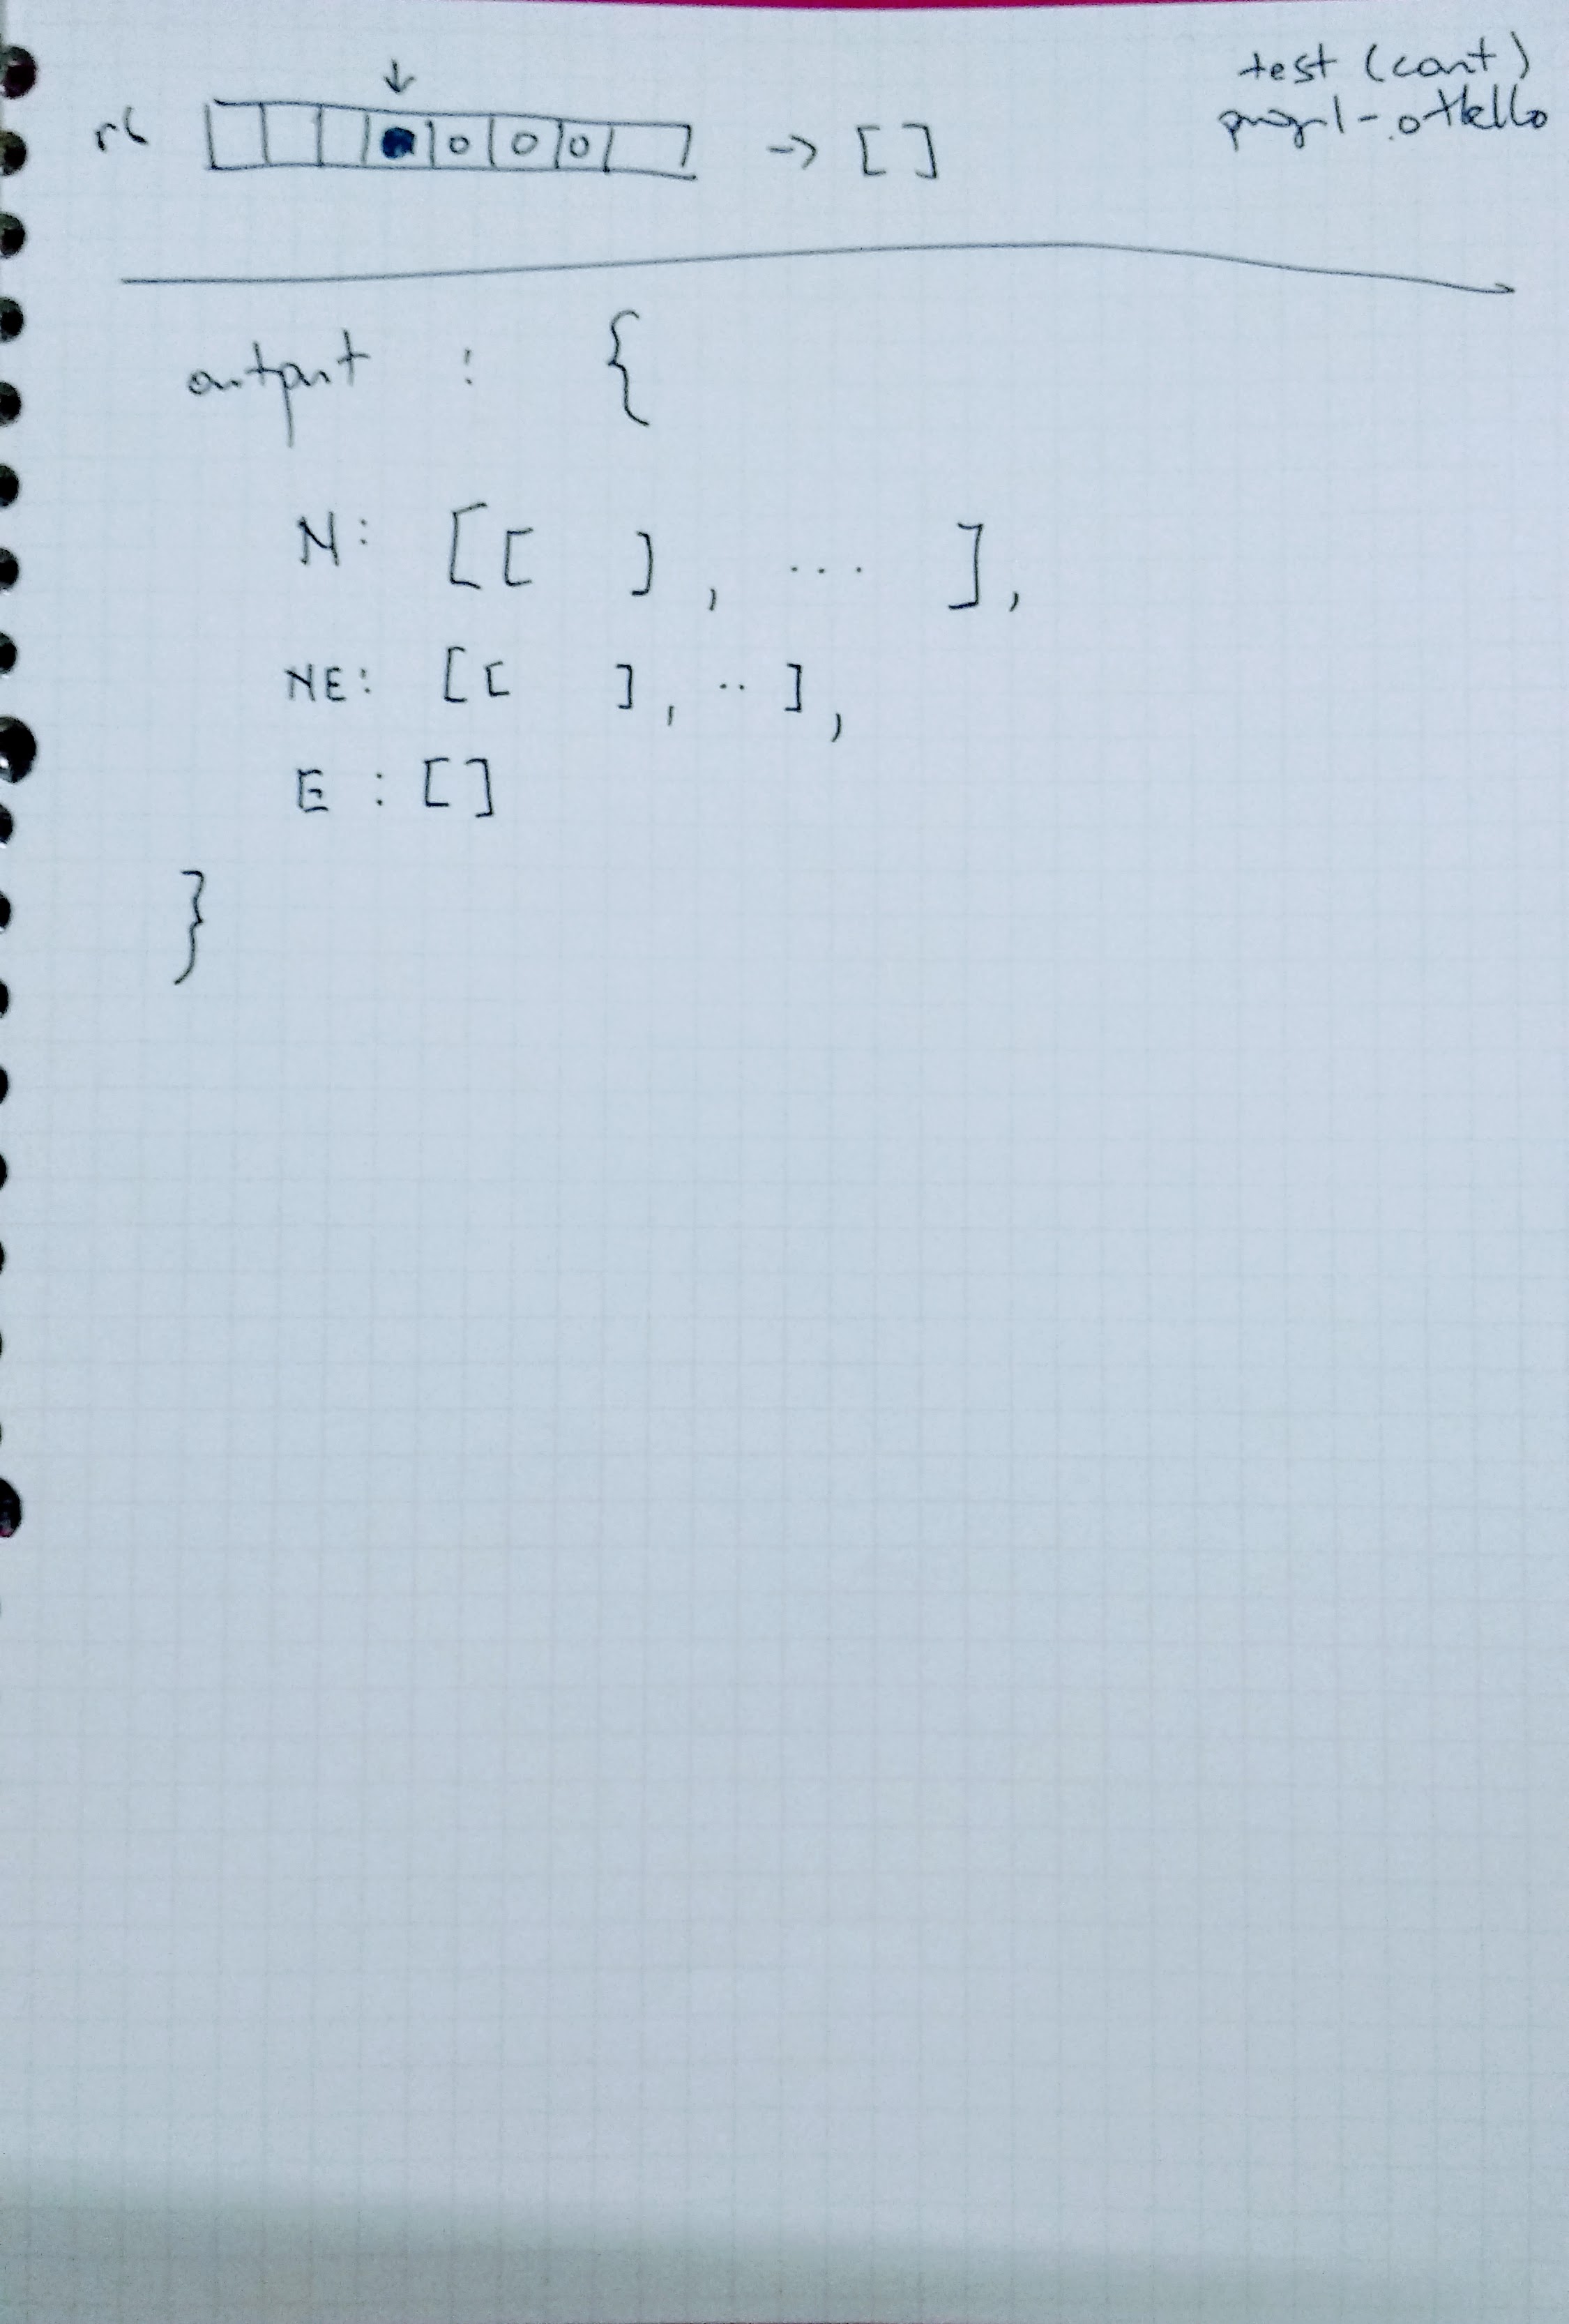 test (cont)
prog1-othello
r6 ↓ o o o → [ ]
output : {
N: [[ ], ... ],
NE: [[ ], .. ],
E : [ ]
}